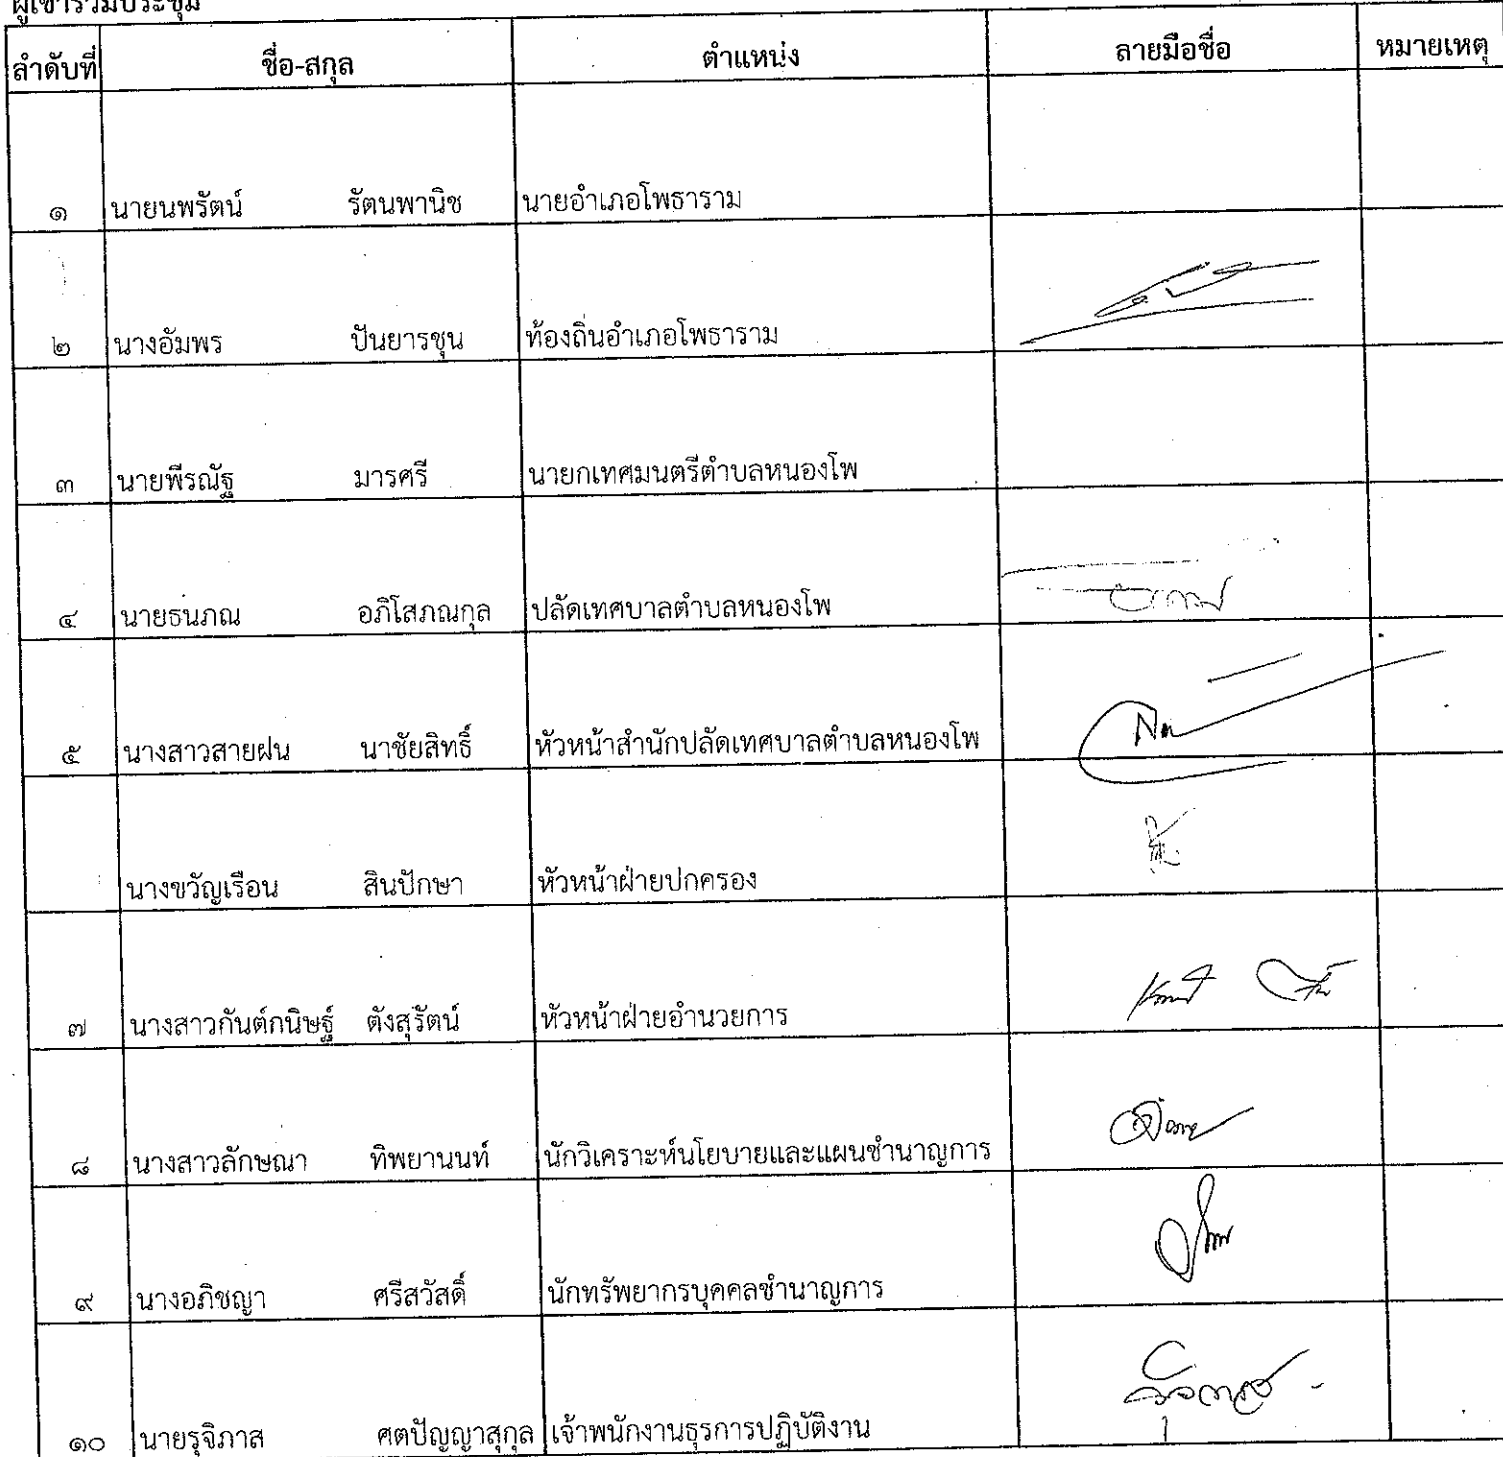 ผู้เข้าร่วมประชุม
ลำดับที่ ชื่อ-สกุล ตำแหน่ง ลายมือชื่อ หมายเหตุ
๑ นายนพรัตน์ รัตนพานิช นายอำเภอโพธาราม
๒ นางอัมพร ปันยารชุน ท้องถิ่นอำเภอโพธาราม
๓ นายพีรณัฐ มารศรี นายกเทศมนตรีตำบลหนองโพ
๔ นายธนภณ อภิโสภณกุล ปลัดเทศบาลตำบลหนองโพ
๕ นางสาวสายฝน นาชัยสิทธิ์ หัวหน้าสำนักปลัดเทศบาลตำบลหนองโพ
นางขวัญเรือน สินปักษา หัวหน้าฝ่ายปกครอง
๗ นางสาวกันต์กนิษฐ์ ตังสุรัตน์ หัวหน้าฝ่ายอำนวยการ
๘ นางสาวลักษณา ทิพยานนท์ นักวิเคราะห์นโยบายและแผนชำนาญการ
๙ นางอภิชญา ศรีสวัสดิ์ นักทรัพยากรบุคคลชำนาญการ
๑๐ นายรุจิภาส ศตปัญญาสุกุล เจ้าพนักงานธุรการปฏิบัติงาน